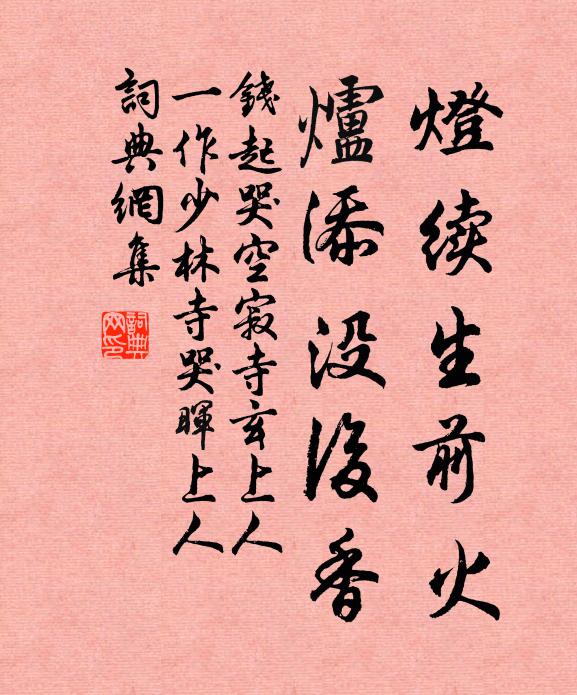 燈续生前火
爐添没後香
錢起哭空寂寺玄上人
一作少林寺哭暉上人
詞典網集
詞典網印